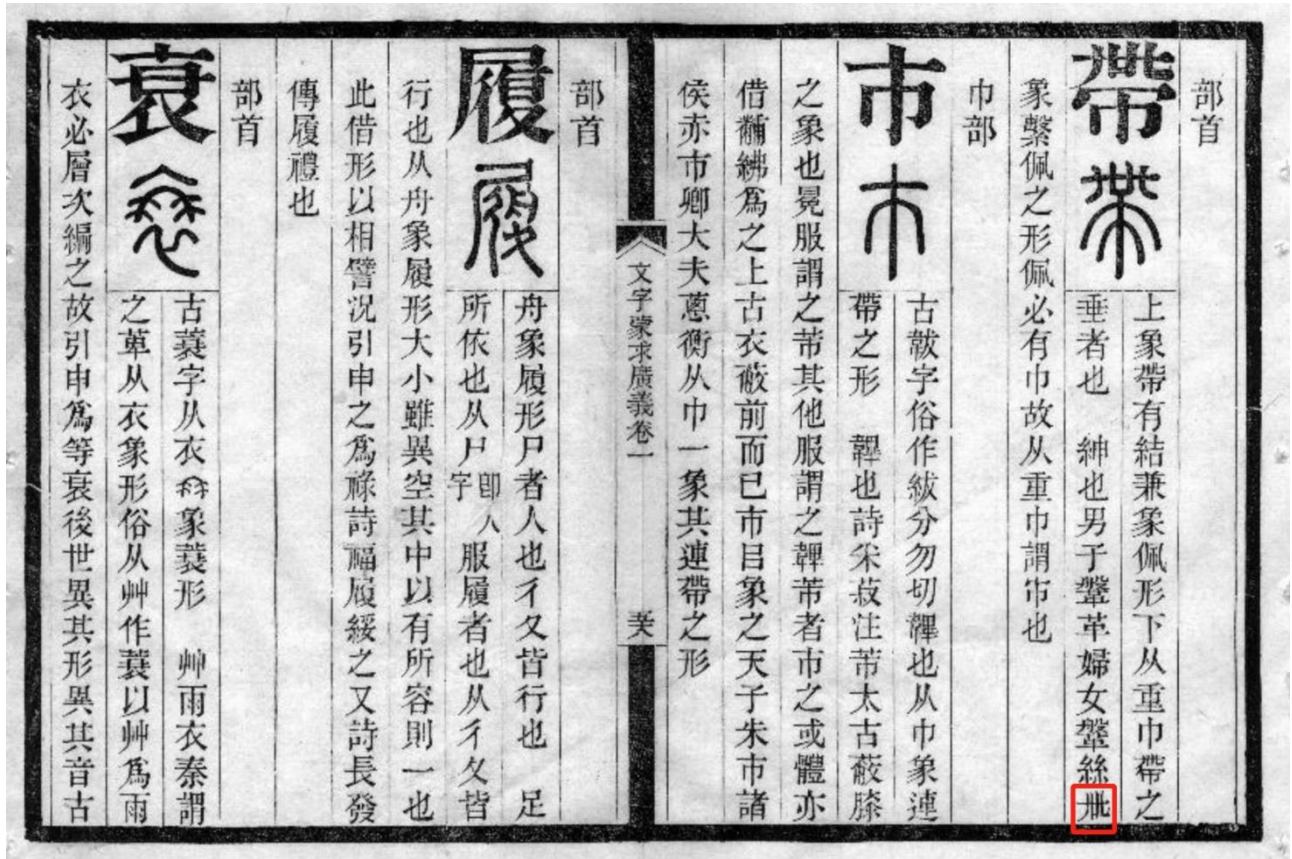 部首
帶
上象帶有結兼象佩形下从重巾帶之
垂者也 紳也男子鞶革婦女鞶絲
象繫佩之形佩必有巾故从重巾謂帀也
巾部
市
古韍字俗作紱分勿切韠也从巾象連
帶之形 韠也詩采菽注芾太古蔽膝
之象也冕服謂之芾其他服謂之韠芾者市之或體亦
借黼紼爲之上古衣蔽前而已市㠯象之天子朱市諸
侯赤市卿大夫蔥衡从巾一象其連帶之形
文字蒙求廣義卷一
部首
履
舟象履形尸者人也彳夂皆行也 足
所依也从尸卽人字服履者也从彳夂皆
行也从舟象履形大小雖異空其中以有所容則一也
此借形以相譬況引申之爲祿詩福履綏之又詩長發
傳履禮也
部首
衰
古蓑字从衣象蓑形 艸雨衣秦謂
之萆从衣象形俗从艸作蓑以艸爲雨
衣必層次編之故引申爲等衰後世異其形異其音古